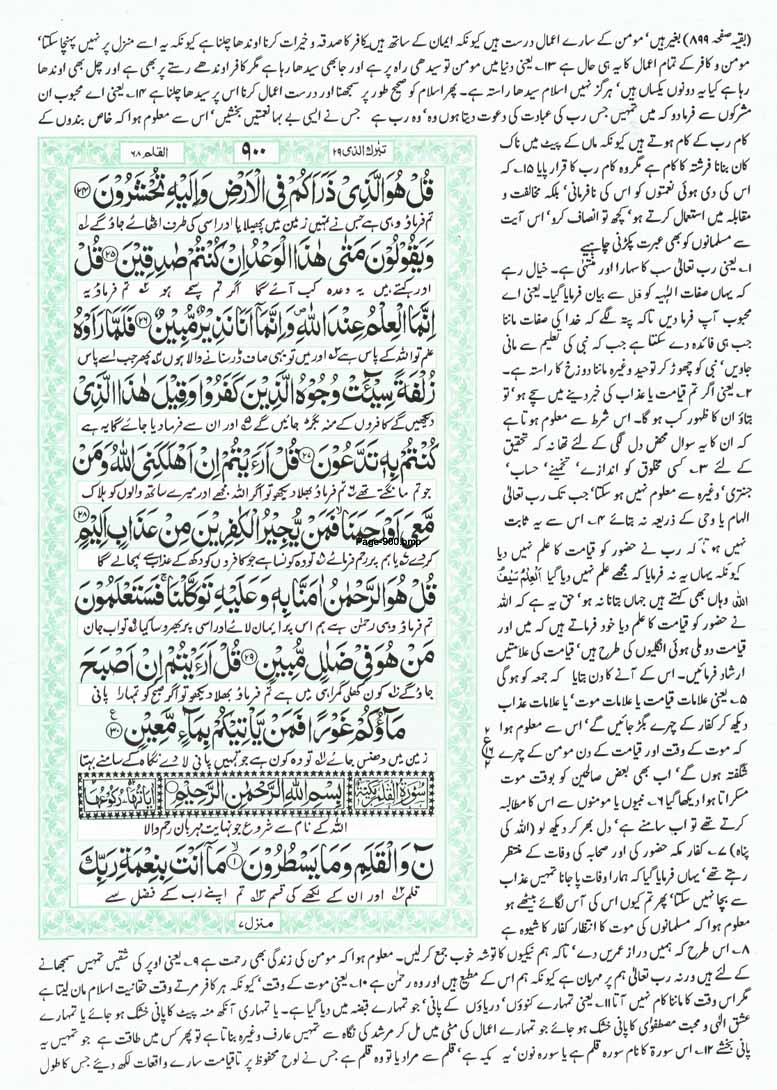 (بقیہ صفحہ ۸۹۹) بغیر ہیں، مومن کے سارے اعمال درست ہیں کیونکہ ایمان کے ساتھ ہیں کافر کا صدقہ و خیرات کرنا اوندھا چلنا ہے کیونکہ یہ اسے منزل پر نہیں پہنچا سکتا،
مومن و کافر کے تمام اعمال کا یہ ہی حال ہے ۱۳۔ یعنی دنیا میں مومن تو سیدھی راہ پر ہے اور جا بھی سیدھا رہا ہے مگر کافر اوندھے رستے پر بھی ہے اور چل بھی اوندھا
رہا ہے کیا یہ دونوں یکساں ہیں، ہرگز نہیں اسلام سیدھا راستہ ہے۔ پھر اسلام کو صحیح طور پر سمجھنا اور درست اعمال کرنا اس پر سیدھا چلنا ہے ۱۴۔ یعنی اے محبوب ان
مشرکوں سے فرما دو کہ میں تمہیں جس رب کی عبادت کی دعوت دیتا ہوں وہ، وہ رب ہے جس نے ایسی بے بہا نعمتیں بخشیں، اس سے معلوم ہوا کہ خاص بندوں کے
کام رب کے کام ہوتے ہیں کیونکہ ماں کے پیٹ میں ناک
کان بنانا فرشتہ کا کام ہے مگر وہ کام رب کا قرار پایا ۱۵۔ کہ
اس کی دی ہوئی نعمتوں کو اس کی نافرمانی، بلکہ مخالفت و
مقابلہ میں استعمال کرتے ہو، کچھ تو انصاف کرو، اس آیت
سے مسلمانوں کو بھی عبرت پکڑنی چاہیے
۱۔ یعنی رب تعالیٰ سب کا سہارا اور منتہی ہے۔ خیال رہے
کہ یہاں صفات الہیہ کو قل سے بیان فرمایا گیا۔ یعنی اے
محبوب آپ فرما دیں تاکہ پتہ لگے کہ خدا کی صفات ماننا
جب ہی فائدہ دے سکتا ہے جب کہ نبی کی تعلیم سے مانی
جاویں، نبی کو چھوڑ کر توحید وغیرہ ماننا دوزخ کا راستہ ہے۔
۲۔ یعنی اگر تم قیامت یا عذاب کی خبر دینے میں سچے ہو، تو
بتاؤ ان کا ظہور کب ہو گا۔ اس شرط سے معلوم ہوتا ہے
کہ ان کا یہ سوال محض دل لگی کے لئے تھا نہ کہ تحقیق
کے لئے ۳۔ کسی مخلوق کو اندازے، تخمینے، حساب،
جنتری، وغیرہ سے معلوم نہیں ہو سکتا، جب تک رب تعالیٰ
الہام یا وحی کے ذریعہ نہ بتائے ۴۔ اس سے یہ ثابت
نہیں ہوتا کہ رب نے حضور کو قیامت کا علم نہیں دیا
کیونکہ یہاں یہ نہ فرمایا کہ مجھے علم نہیں دیا گیا
اللہ وہاں بھی کہتے ہیں جہاں بتانا نہ ہو، حق یہ ہے کہ اللہ
نے حضور کو قیامت کا علم دیا خود فرماتے ہیں کہ میں اور
قیامت دو ملی ہوئی انگلیوں کی طرح ہیں، قیامت کی علامتیں
ارشاد فرمائیں۔ اس کے آنے کا دن بتایا کہ جمعہ کو ہو گی
۵۔ یعنی علامات قیامت یا علامات موت، یا علامات عذاب
دیکھ کر کفار کے چہرے بگڑ جائیں گے، اس سے معلوم ہوا
کہ موت کے وقت اور قیامت کے دن مومن کے چہرے
شگفتہ ہوں گے، اب بھی بعض صالحین کو بوقت موت
مسکراتا ہوا دیکھا گیا ۶۔ نبیوں یا مومنوں سے اس کا مطالبہ
کرتے تھے تو اب سامنے ہے، دل بھر کر دیکھ لو (اللہ کی
پناہ) ۷۔ کفار مکہ حضور کی اور صحابہ کی وفات کے منتظر
رہتے تھے، یہاں فرمایا گیا کہ ہمارا وفات پا جانا تمہیں عذاب
سے بچا نہیں سکتا، پھر تم کیوں اس کی آس لگائے بیٹھے ہو
معلوم ہوا کہ مسلمانوں کی موت کا انتظار کفار کا شیوہ ہے
تبٰرک الذی ۲۹
۹۰۰
القلم ۶۸
قُلْ هُوَ الَّذِیْ ذَرَاَكُمْ فِی الْاَرْضِ وَاِلَیْهِ تُحْشَرُوْنَ ﴿۲۴﴾
تم فرماؤ وہی ہے جس نے تمہیں زمین میں پھیلایا اور اسی کی طرف اٹھائے جاؤ گے
وَیَقُوْلُوْنَ مَتٰی هٰذَا الْوَعْدُ اِنْ كُنْتُمْ صٰدِقِیْنَ ﴿۲۵﴾ قُلْ
اور کہتے ہیں یہ وعدہ کب آئے گا اگر تم سچے ہو تم فرماؤ یہ
اِنَّمَا الْعِلْمُ عِنْدَ اللّٰهِ وَاِنَّمَاۤ اَنَا نَذِیْرٌ مُّبِیْنٌ ﴿۲۶﴾ فَلَمَّا رَاَوْهُ
علم تو اللہ کے پاس ہے اور میں تو یہی صاف ڈر سنانے والا ہوں پھر جب اسے پاس
زُلْفَةً سِیْٓئَتْ وُجُوْهُ الَّذِیْنَ كَفَرُوْا وَقِیْلَ هٰذَا الَّذِیْ
دیکھیں گے کافروں کے منہ بگڑ جائیں گے اور ان سے فرما دیا جائے گا یہ ہے
كُنْتُمْ بِهٖ تَدَّعُوْنَ ﴿۲۷﴾ قُلْ اَرَءَیْتُمْ اِنْ اَهْلَكَنِیَ اللّٰهُ وَمَنْ
جو تم مانگتے تھے تم فرماؤ بھلا دیکھو تو اگر اللہ مجھے اور میرے ساتھ والوں کو ہلاک
مَّعِیَ اَوْ رَحِمَنَا فَمَنْ یُّجِیْرُ الْكٰفِرِیْنَ مِنْ عَذَابٍ اَلِیْمٍ ﴿۲۸﴾
Page-900.bmp
کر دے یا ہم پر رحم فرمائے تو وہ کونسا ہے جو کافروں کو دکھ کے عذاب سے بچا لے گا
قُلْ هُوَ الرَّحْمٰنُ اٰمَنَّا بِهٖ وَعَلَیْهِ تَوَكَّلْنَا فَسَتَعْلَمُوْنَ
تم فرماؤ وہی رحمٰن ہے ہم اس پر ایمان لائے اور اسی پر بھروسا کیا تو اب جان
مَنْ هُوَ فِیْ ضَلٰلٍ مُّبِیْنٍ ﴿۲۹﴾ قُلْ اَرَءَیْتُمْ اِنْ اَصْبَحَ
جاؤ گے کون کھلی گمراہی میں ہے تم فرماؤ بھلا دیکھو تو اگر صبح کو تمہارا پانی
مَآؤُكُمْ غَوْرًا فَمَنْ یَّاْتِیْكُمْ بِمَآءٍ مَّعِیْنٍ ﴿۳۰﴾
زمین میں دھنس جائے تو وہ کون ہے جو تمہیں پانی لا دے نگاہ کے سامنے بہتا
سُوْرَةُ الْقَلَمِ مَكِّیَّةٌ بِسْمِ اللّٰهِ الرَّحْمٰنِ الرَّحِیْمِ
اللہ کے نام سے شروع جو نہایت مہربان رحم والا
نٓ وَالْقَلَمِ وَمَا یَسْطُرُوْنَ ﴿۱﴾ مَاۤ اَنْتَ بِنِعْمَةِ رَبِّكَ
قلم اور ان کے لکھے کی قسم تم اپنے رب کے فضل سے
منزل ۷
۸۔ اس طرح کہ ہمیں دراز عمریں دے، تاکہ ہم نیکیوں کا توشہ خوب جمع کر لیں۔ معلوم ہوا کہ مومن کی زندگی بھی رحمت ہے ۹۔ یعنی اوپر کی شقیں تمہیں سمجھانے
کے لئے ہیں ورنہ رب تعالیٰ ہم پر مہربان ہے کیونکہ ہم اس کے مطیع ہیں اور وہ رحمٰن ہے ۱۰۔ یعنی موت کے وقت، کیونکہ ہر کافر مرتے وقت حقانیت اسلام مان لیتا ہے
مگر اس وقت کا ماننا کام نہیں آتا ۱۱۔ یعنی تمہارے کنوؤں، دریاؤں کے پانی، جو تمہارے قبضہ میں دیا گیا ہے۔ یا تمہاری آنکھ منہ پیٹ کا پانی خشک ہو جائے یا تمہارے
عشق الٰہی و محبت مصطفوی کا پانی خشک ہو جائے جو تمہارے اعمال کی مٹی میں مل کر مرشد کی نگاہ سے تمہیں عارف وغیرہ بناتا ہے تو پھر کس میں طاقت ہے جو تمہیں یہ
پانی بخشے ۱۲۔ اس سورۃ کا نام سورہ قلم ہے یا سورہ نون، یہ مکیہ ہے، قلم سے مراد یا تو وہ قلم ہے جس نے لوح محفوظ پر تا قیامت سارے واقعات لکھ دیئے جس کا طول